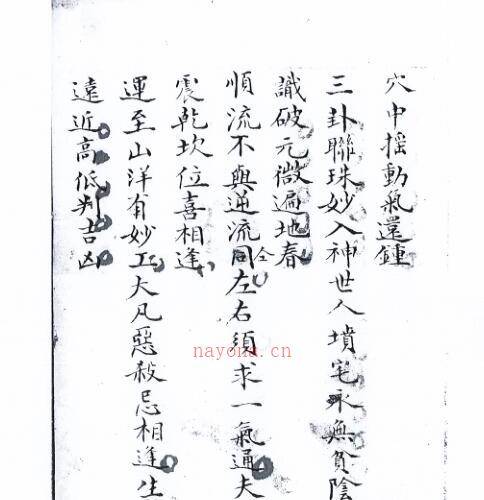 穴中揺動氣還鍾
三卦聯珠妙入神世人墳宅永無貧陰
識破元微遍地春
全
順流不與逆流同左右須求一氣通夫
震乾坎位喜相逢
運至山洋有妙工大凡惡殺忌相逢生
遠近高低判吉凶
nayona.cn